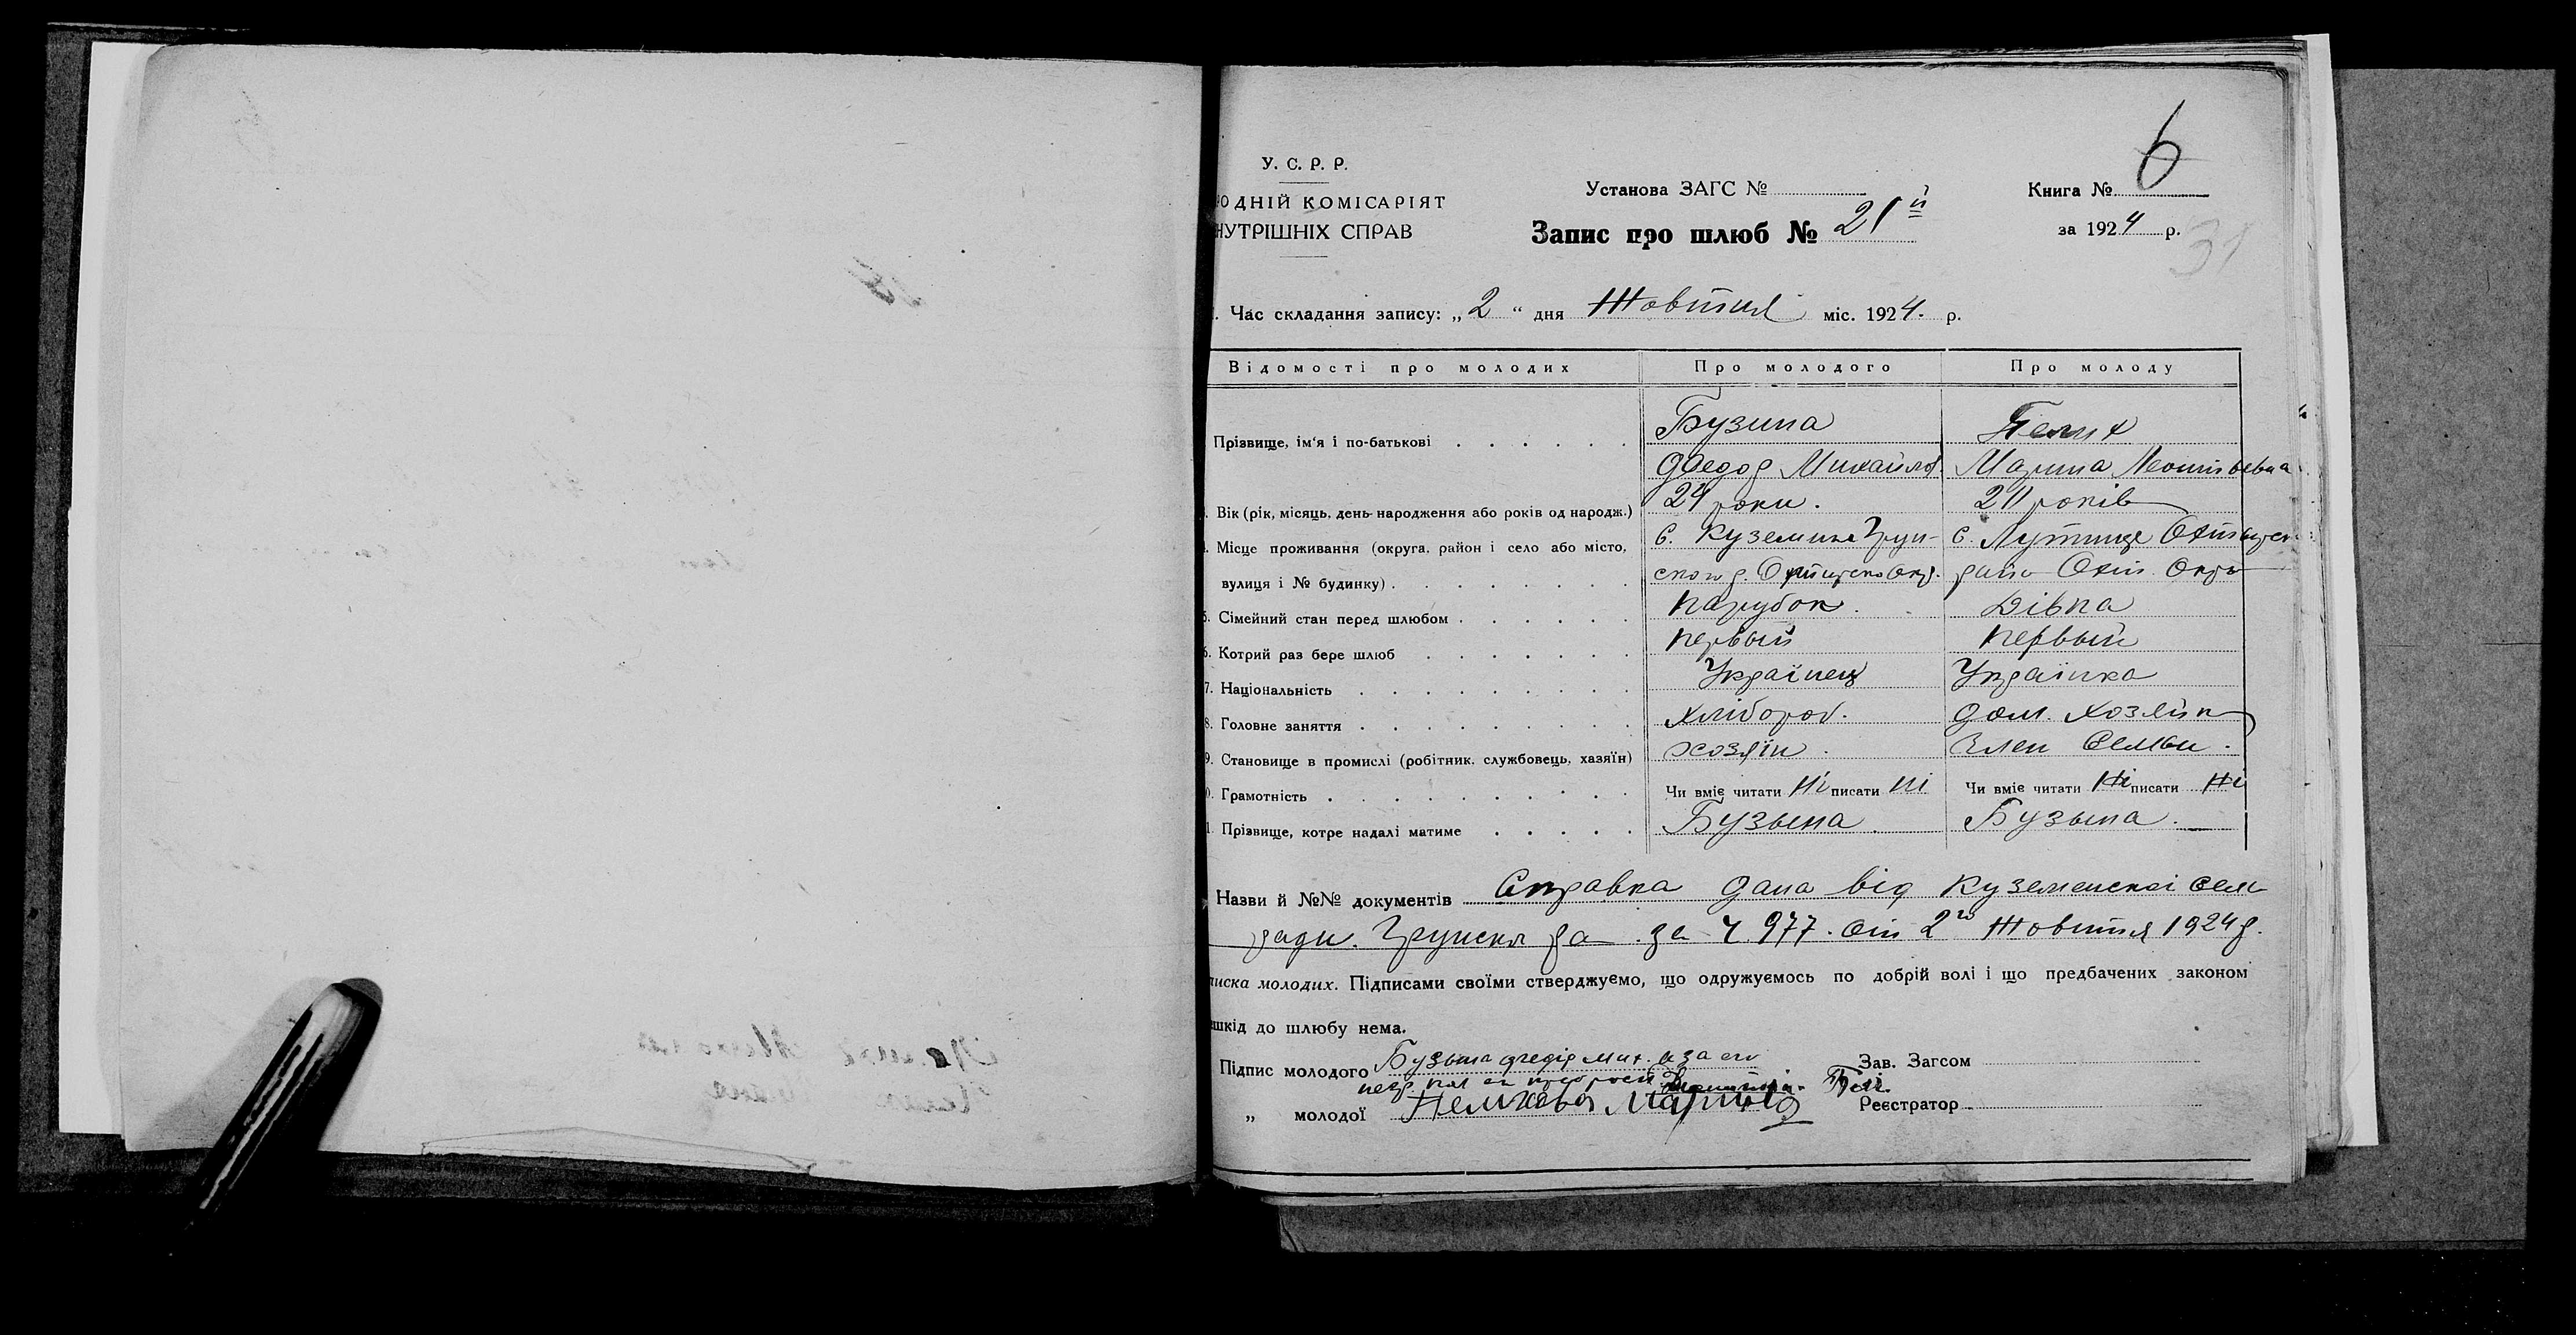 У. С. Р. Р.
ОДНІЙ КОМІСАРІЯТ
НУТРІШНІХ СПРАВ
Установа ЗАГС №
Запис про шлюб № 21й
Книга № 6
за 1924 р.
31
Час складання запису: „2“ дня Жовтня міс. 1924. р.
Відомості про молодих Про молодого Про молоду
Прізвище, ім'я і по-батькові . . . . . . Бузина Пелих
Федор Михайлов. Марина Леонтьевна
Вік (рік, місяць, день народження або років од народж.) 24 роки. 21 років
Місце проживання (округа, район і село або місто, С. Куземина Грун- С. Лутище Охтирск
вулиця і № будинку) . . . . . . . ского р. Охтирско Окр. райо Охт. Окру
5. Сімейний стан перед шлюбом . . . . . . парубок. Дівка
6. Котрий раз бере шлюб . . . . . . . первый первый
7. Національність . . . . . . . . . Українец Українка
8. Головне заняття . . . . . . . . . хлібороб. дом. хозяйк
9. Становище в промислі (робітник, службовець, хазяїн) хозяїн. Член семьи.
Грамотність . . . . . . . . . . Чи вміє читати Ні писати Ні Чи вміє читати Ні писати Ні
Прізвище, котре надалі матиме . . . . . Бузына Бузына.
Назви й №№ документів Справка дана від Куземенскої сель
ради. Грунско ра за Ч. 977. От 2го Жовтня 1924 р.
писка молодих. Підписами своїми стверджуємо, що одружуємось по добрій волі і що предбачених законом
шкід до шлюбу нема.
Підпис молодого Бузына Федір Мих. а за его
Зав. Загсом
„ молодої Пелихова Марина
Реєстратор